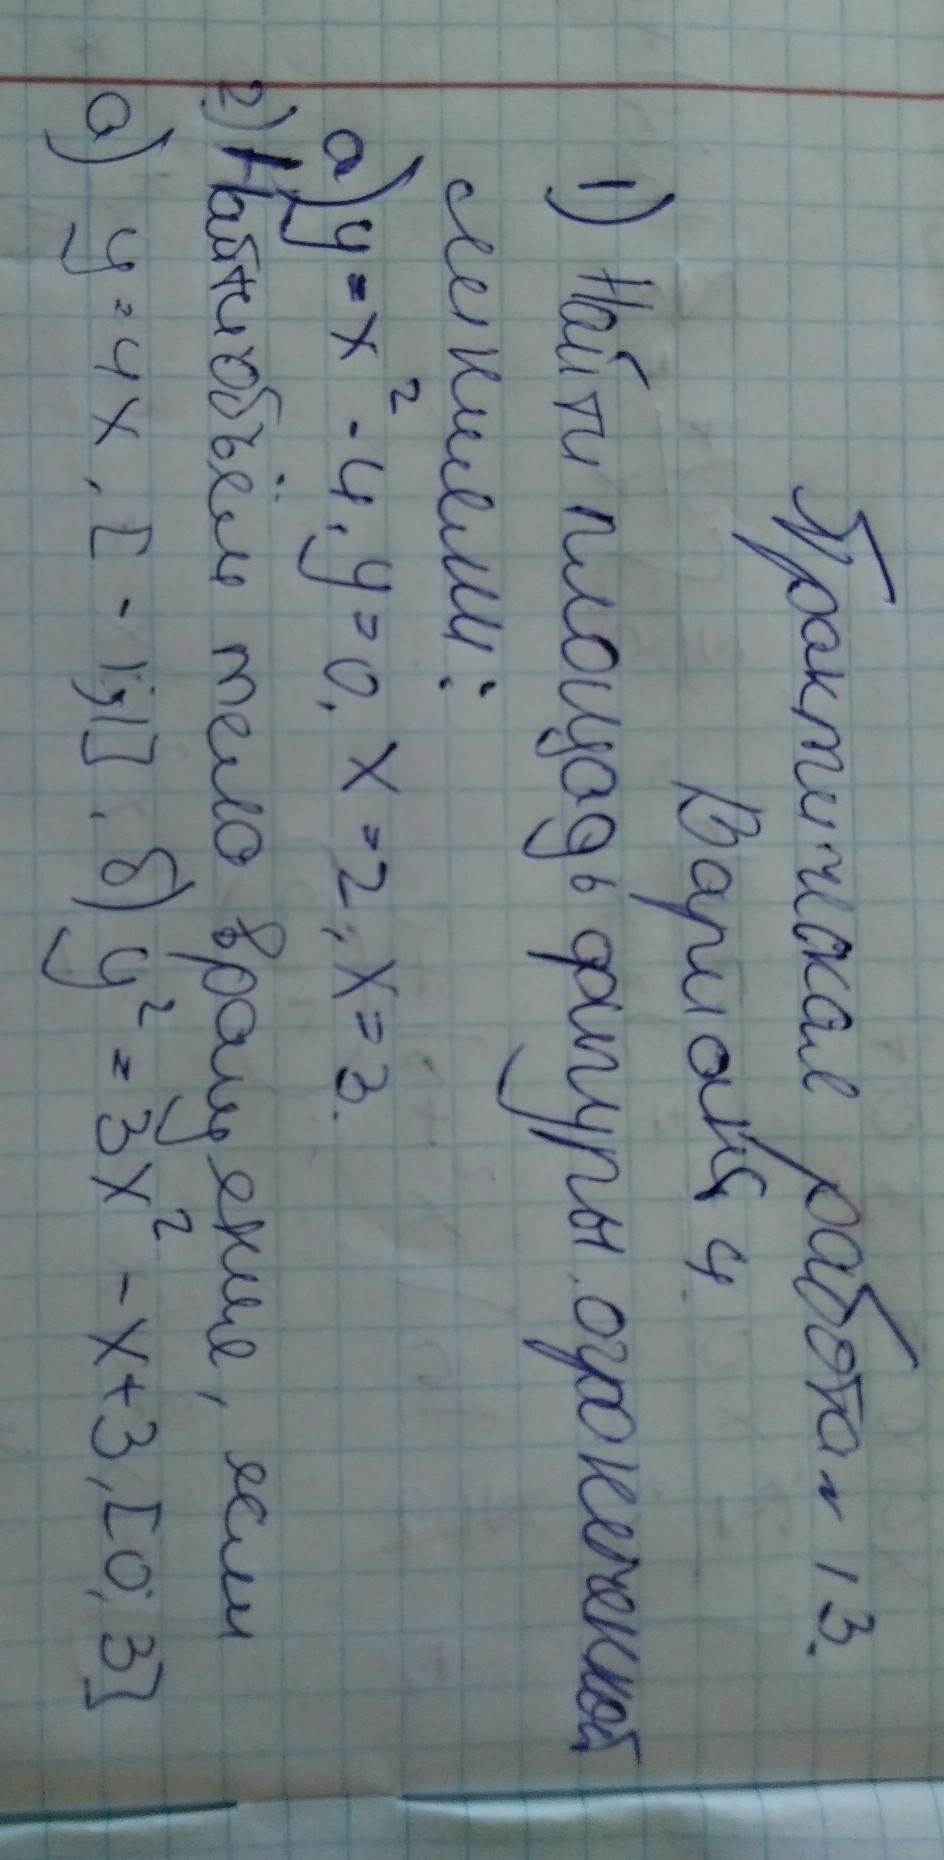 Практическая работа ~ 13.
Вариант 4.
1) Найти площадь фигуры, ограниченной
линиями:
а) y = x² - 4, y = 0, x = 2, x = 3.
2) Найти объём тело вращение, если
а) y = 4x, [-1;1], б) y² = 3x² - x + 3, [0; 3]